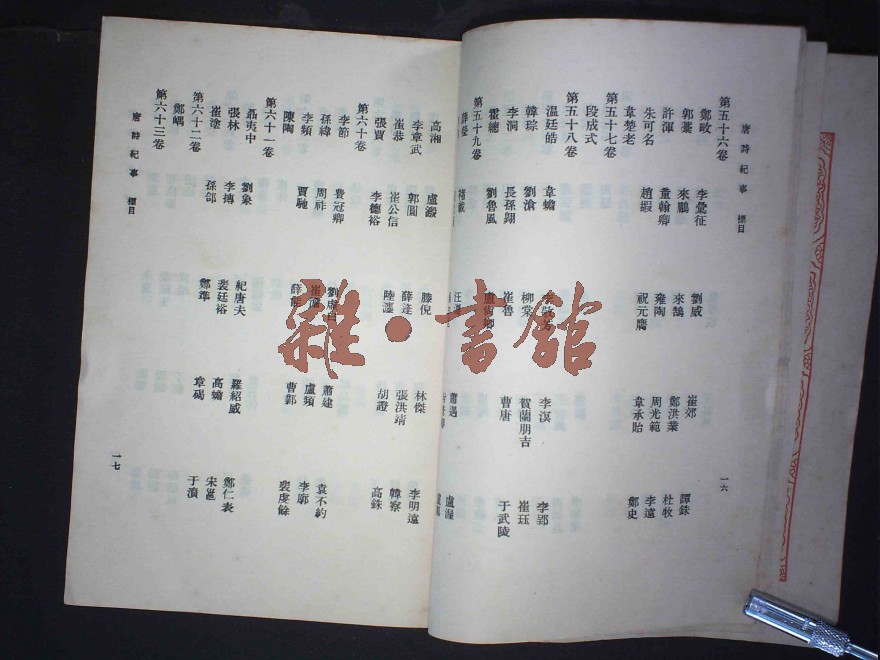 唐詩紀事 標目
第五十六卷
鄭畋 李彙征 劉威 崔郊 譚銖
郭鄩 來鵬 來鵠 鄭洪業 杜牧
許渾 董翰卿 雍陶 周光範 李遠
朱可名 趙嘏 祝元膺 韋承貽 鄭史
韋楚老
第五十七卷
段成式
第五十八卷
溫廷皓 韋蟾 李 李溟 李郢
韓琮 劉滄 柳棠 賀蘭朋吉 崔珏
李洞 長孫翶 崔魯 曹唐 于武陵
霍總 劉魯風 盧
第五十九卷
薛瑩 褚載 汪遵 蕭遇 盧渥
一六
高湘 盧澱 滕倪 林傑 李明遠
李章武 郭圓 薛逢 張洪靖 韓察
崔恭 崔公信 陸瀍 胡證 高銖
張賈 李德裕
第六十卷
李節 費冠卿 劉虛白 蕭建 袁不約
孫緯 周祚 崔 盧頻 李廓
李頻 賈馳 薛能 曹鄴 裴虔餘
陳陶
第六十一卷
聶夷中 劉象 紀唐夫 羅紹威 鄭仁表
張林 李摶 裴廷裕 高蟾 宋邕
崔塗 孫郃 鄭準 章碣 于濆
第六十二卷
鄭嵎
第六十三卷
唐詩紀事 標目
一七
雜·書館